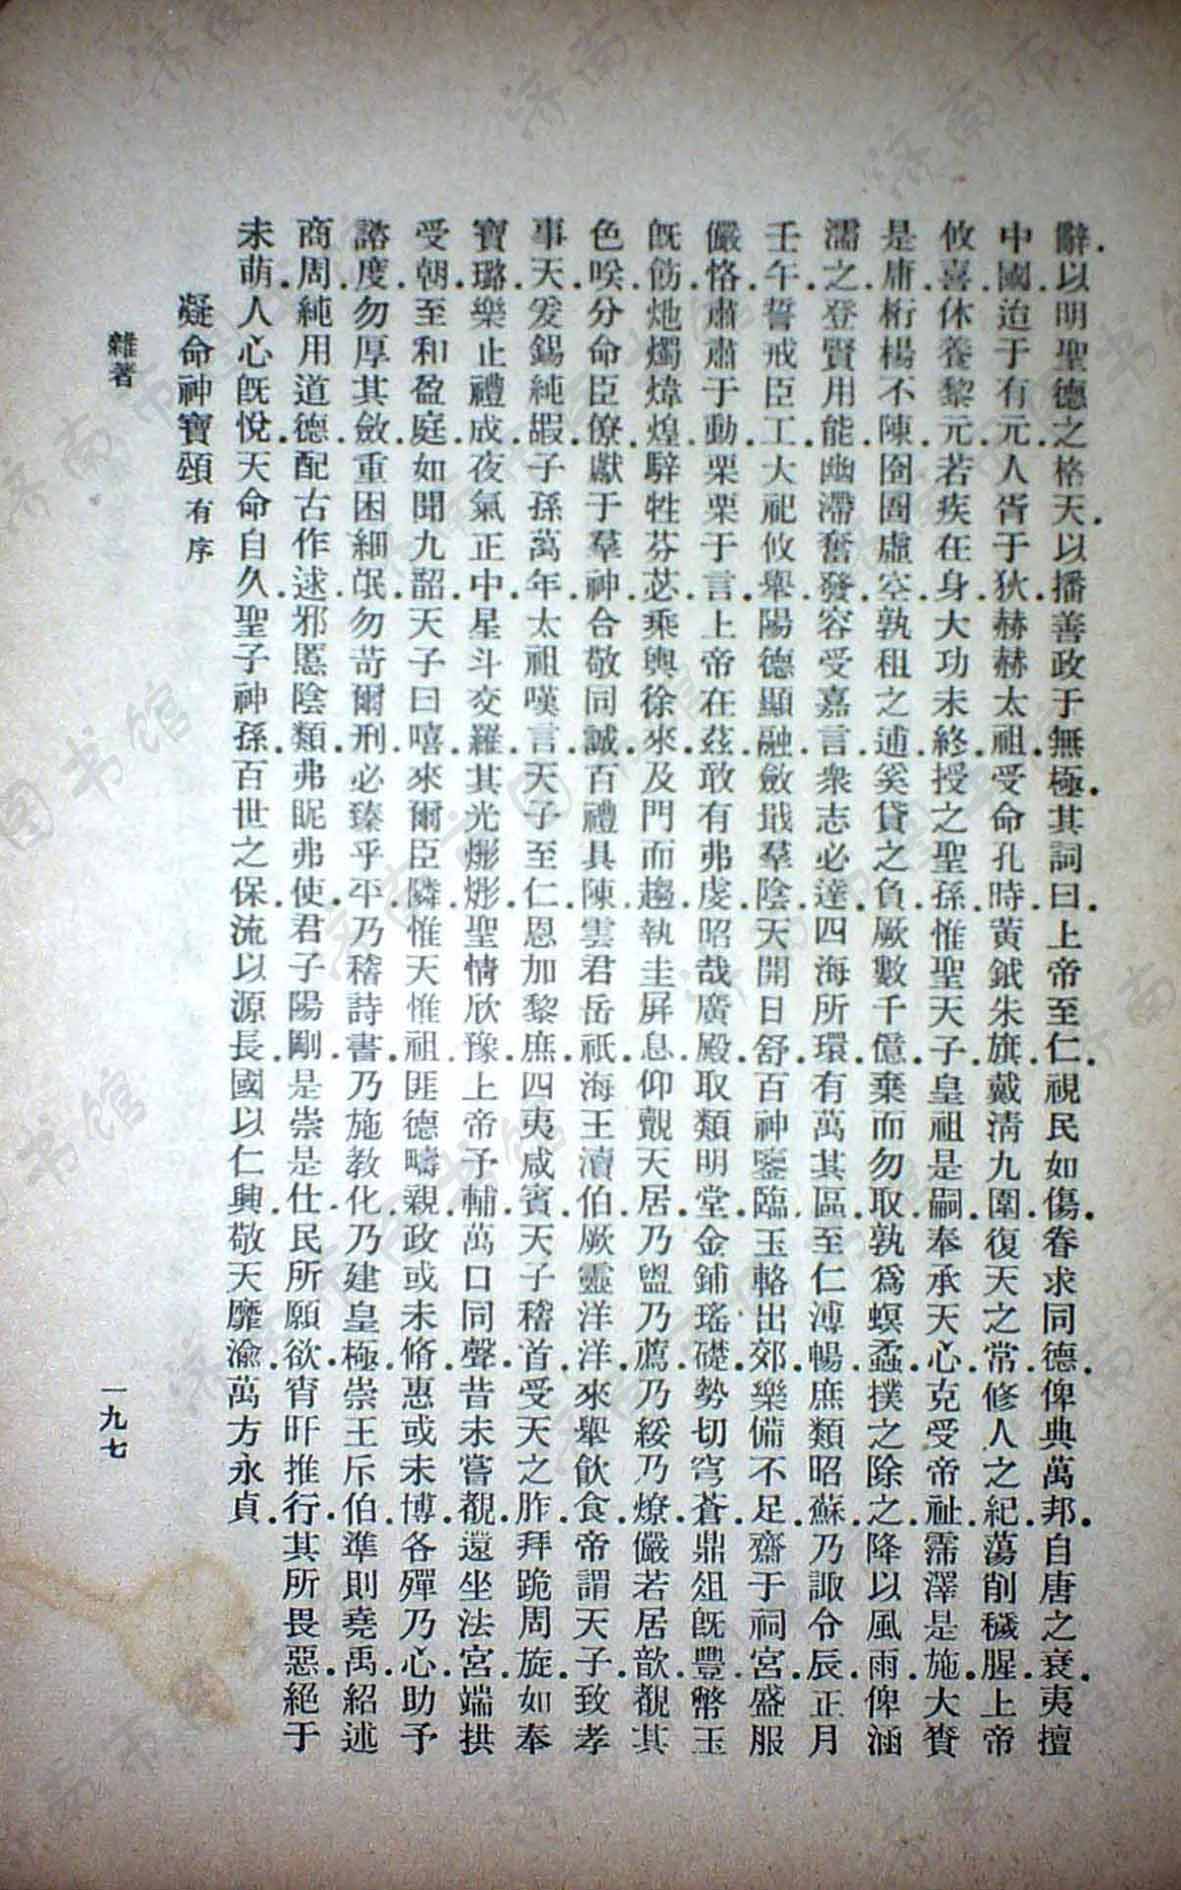 辭以明聖德之格天以播善政于無極其詞曰上帝至仁視民如傷眷求同德俾典萬邦自唐之衰夷擅
中國迨于有元人胥于狄赫赫太祖受命孔時黃鉞朱旗戴清九圍復天之常修人之紀蕩削穢腥上帝
攸喜休養黎元若疾在身大功未終授之聖孫惟聖天子皇祖是嗣奉承天心克受帝祉霈澤是施大賚
是庸桁楊不陳囹圄虛空孰租之逋奚貸之負厥數千億棄而勿取孰爲螟蟊撲之除之降以風雨俾涵
濡之登賢用能幽滯奮發容受嘉言衆志必達四海所環有萬其區至仁溥暢庶類昭蘇乃諏令辰正月
壬午誓戒臣工大祀攸舉陽德顯融斂戢羣陰天開日舒百神鑒臨玉輅出郊樂備不足齋于祠宮盛服
儼恪肅肅于動栗栗于言上帝在茲敢有弗虔昭哉廣殿取類明堂金鋪瑤礎勢切穹蒼鼎俎旣豐幣玉
旣飭灺燭煒煌騂牲芬苾乘輿徐來及門而趨執圭屏息仰覿天居乃盥乃薦乃綏乃燎儼若居歆覩其
色唉分命臣僚獻于羣神合敬同誠百禮具陳雲君岳祇海王瀆伯厥靈洋洋來舉飲食帝謂天子致孝
事天爰錫純嘏子孫萬年太祖嘆言天子至仁恩加黎庶四夷咸賓天子稽首受天之胙拜跪周旋如奉
寶璐樂止禮成夜氣正中星斗交羅其光熊熊聖情欣豫上帝予輔萬口同聲昔未嘗覩還坐法宮端拱
受朝至和盈庭如聞九韶天子曰嘻來爾臣隣惟天惟祖匪德疇親政或未脩惠或未博各殫乃心助予
諮度勿厚其斂重困細氓勿苛爾刑必臻乎平乃稽詩書乃施教化乃建皇極崇王斥伯準則堯禹紹述
商周純用道德配古作逑邪慝陰類弗昵弗使君子陽剛是崇是仕民所願欲宵旰推行其所畏惡絕于
未萌人心旣悅天命自久聖子神孫百世之保流以源長國以仁興敬天靡渝萬方永貞
凝命神寶頌有序
雜著
一九七